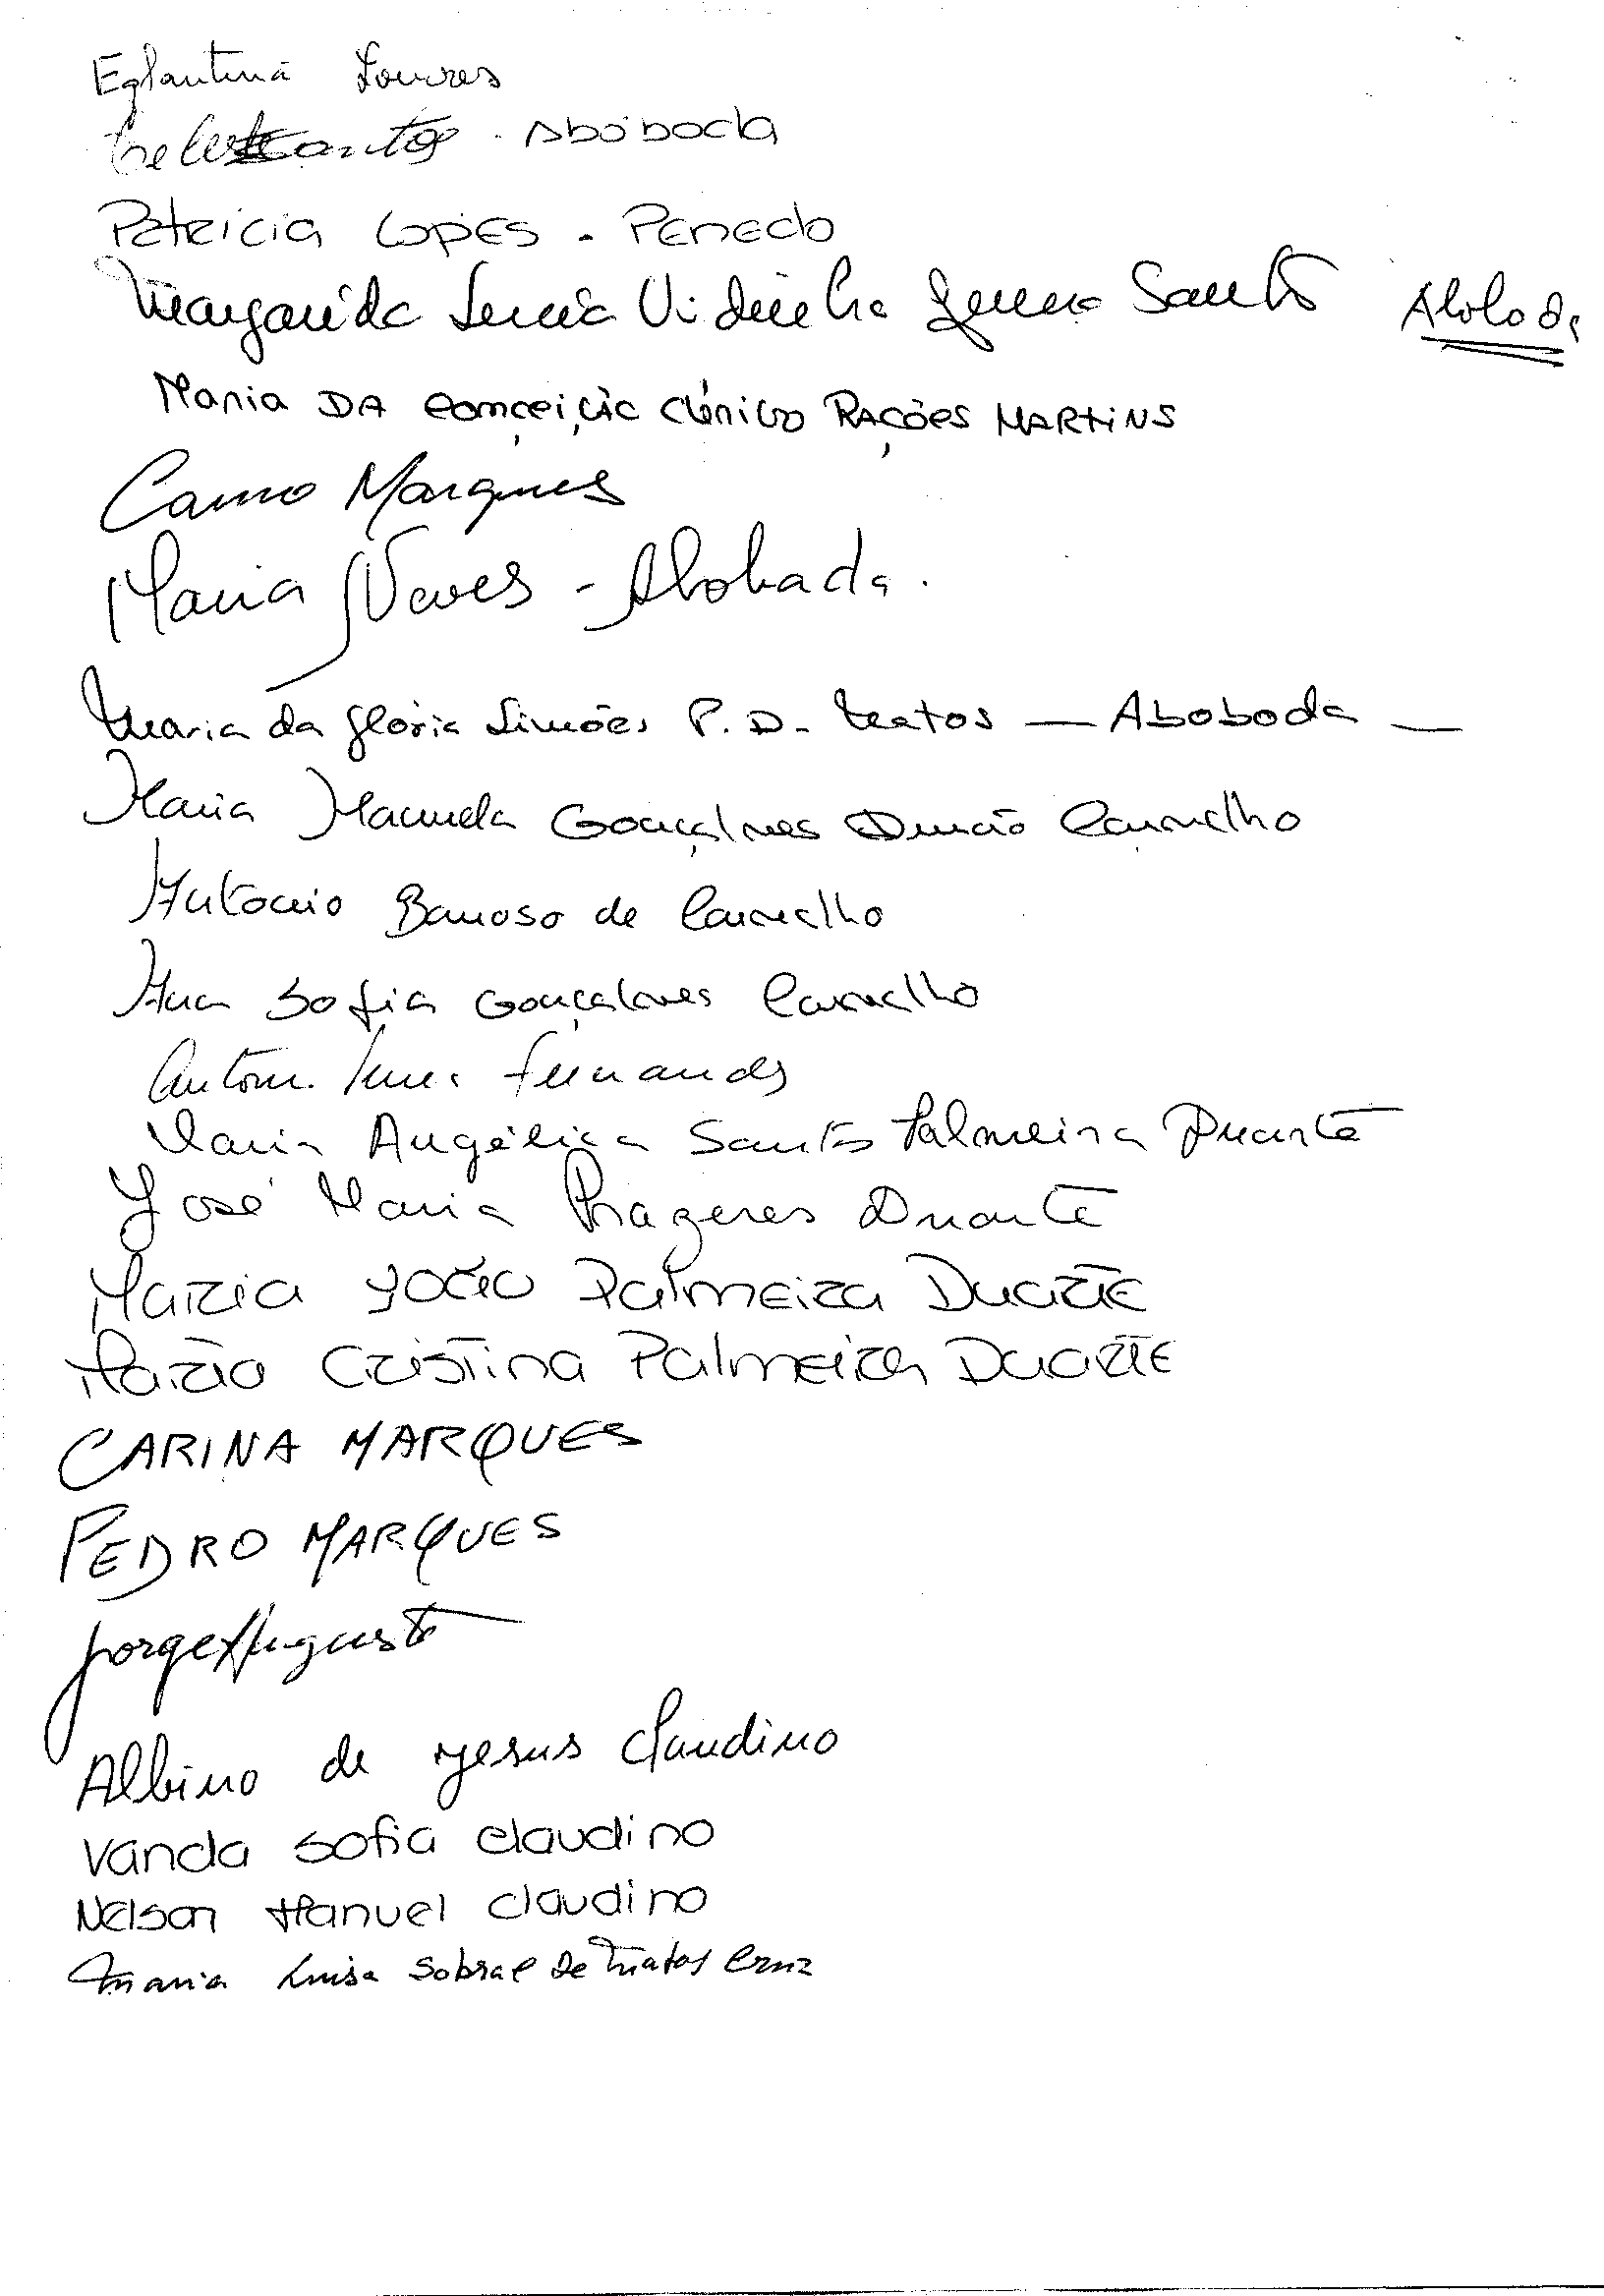 Eglantina Loures
Celeste Santos - Abóboda
Patricia Lopes - Penedo
Margarida Lucia Vidinha Santos Aboboda
Maria DA Conceição Clérigo RAções MARTINS
Marques
Maria Neves - Abobada.
Maria da Glória Simões P. D. Matos — Aboboda —
Maria Manuela Gonçalves Durão Carvalho
António Barroso de Carvalho
Ana Sofia Gonçalves Carvalho
Fernandes
Maria Angélica Santos Palmeira Duarte
José Maria Prazeres Duarte
Maria João Palmeira Duarte
Cristina Palmeira Duarte
CARINA MARQUES
PEDRO MARQUES
Jorge Augusto
Albino de Jesus Claudino
Vanda Sofia Claudino
Nelson Manuel Claudino
Maria Luisa Sobral De Matos Cruz